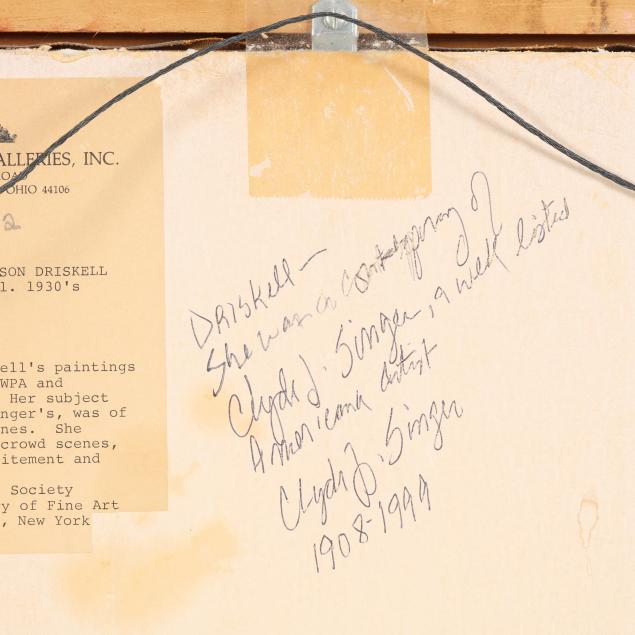 ALLERIES, INC.
ROAD
OHIO 44106
2
SON DRISKELL
l. 1930's
ell's paintings
WPA and
Her subject
nger's, was of
nes. She
crowd scenes,
itement and
Society
y of Fine Art
, New York
DRISKELL —
She was a contemporary of
Clyde J. Singer, a well listed
Americana artist
Clyde J. Singer
1908-1999